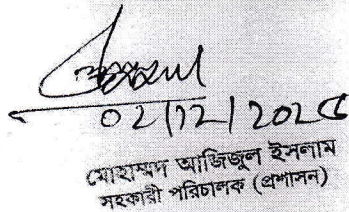 02/12/2025
মোহাম্মদ আজিজুল ইসলাম
সহকারী পরিচালক (প্রশাসন)